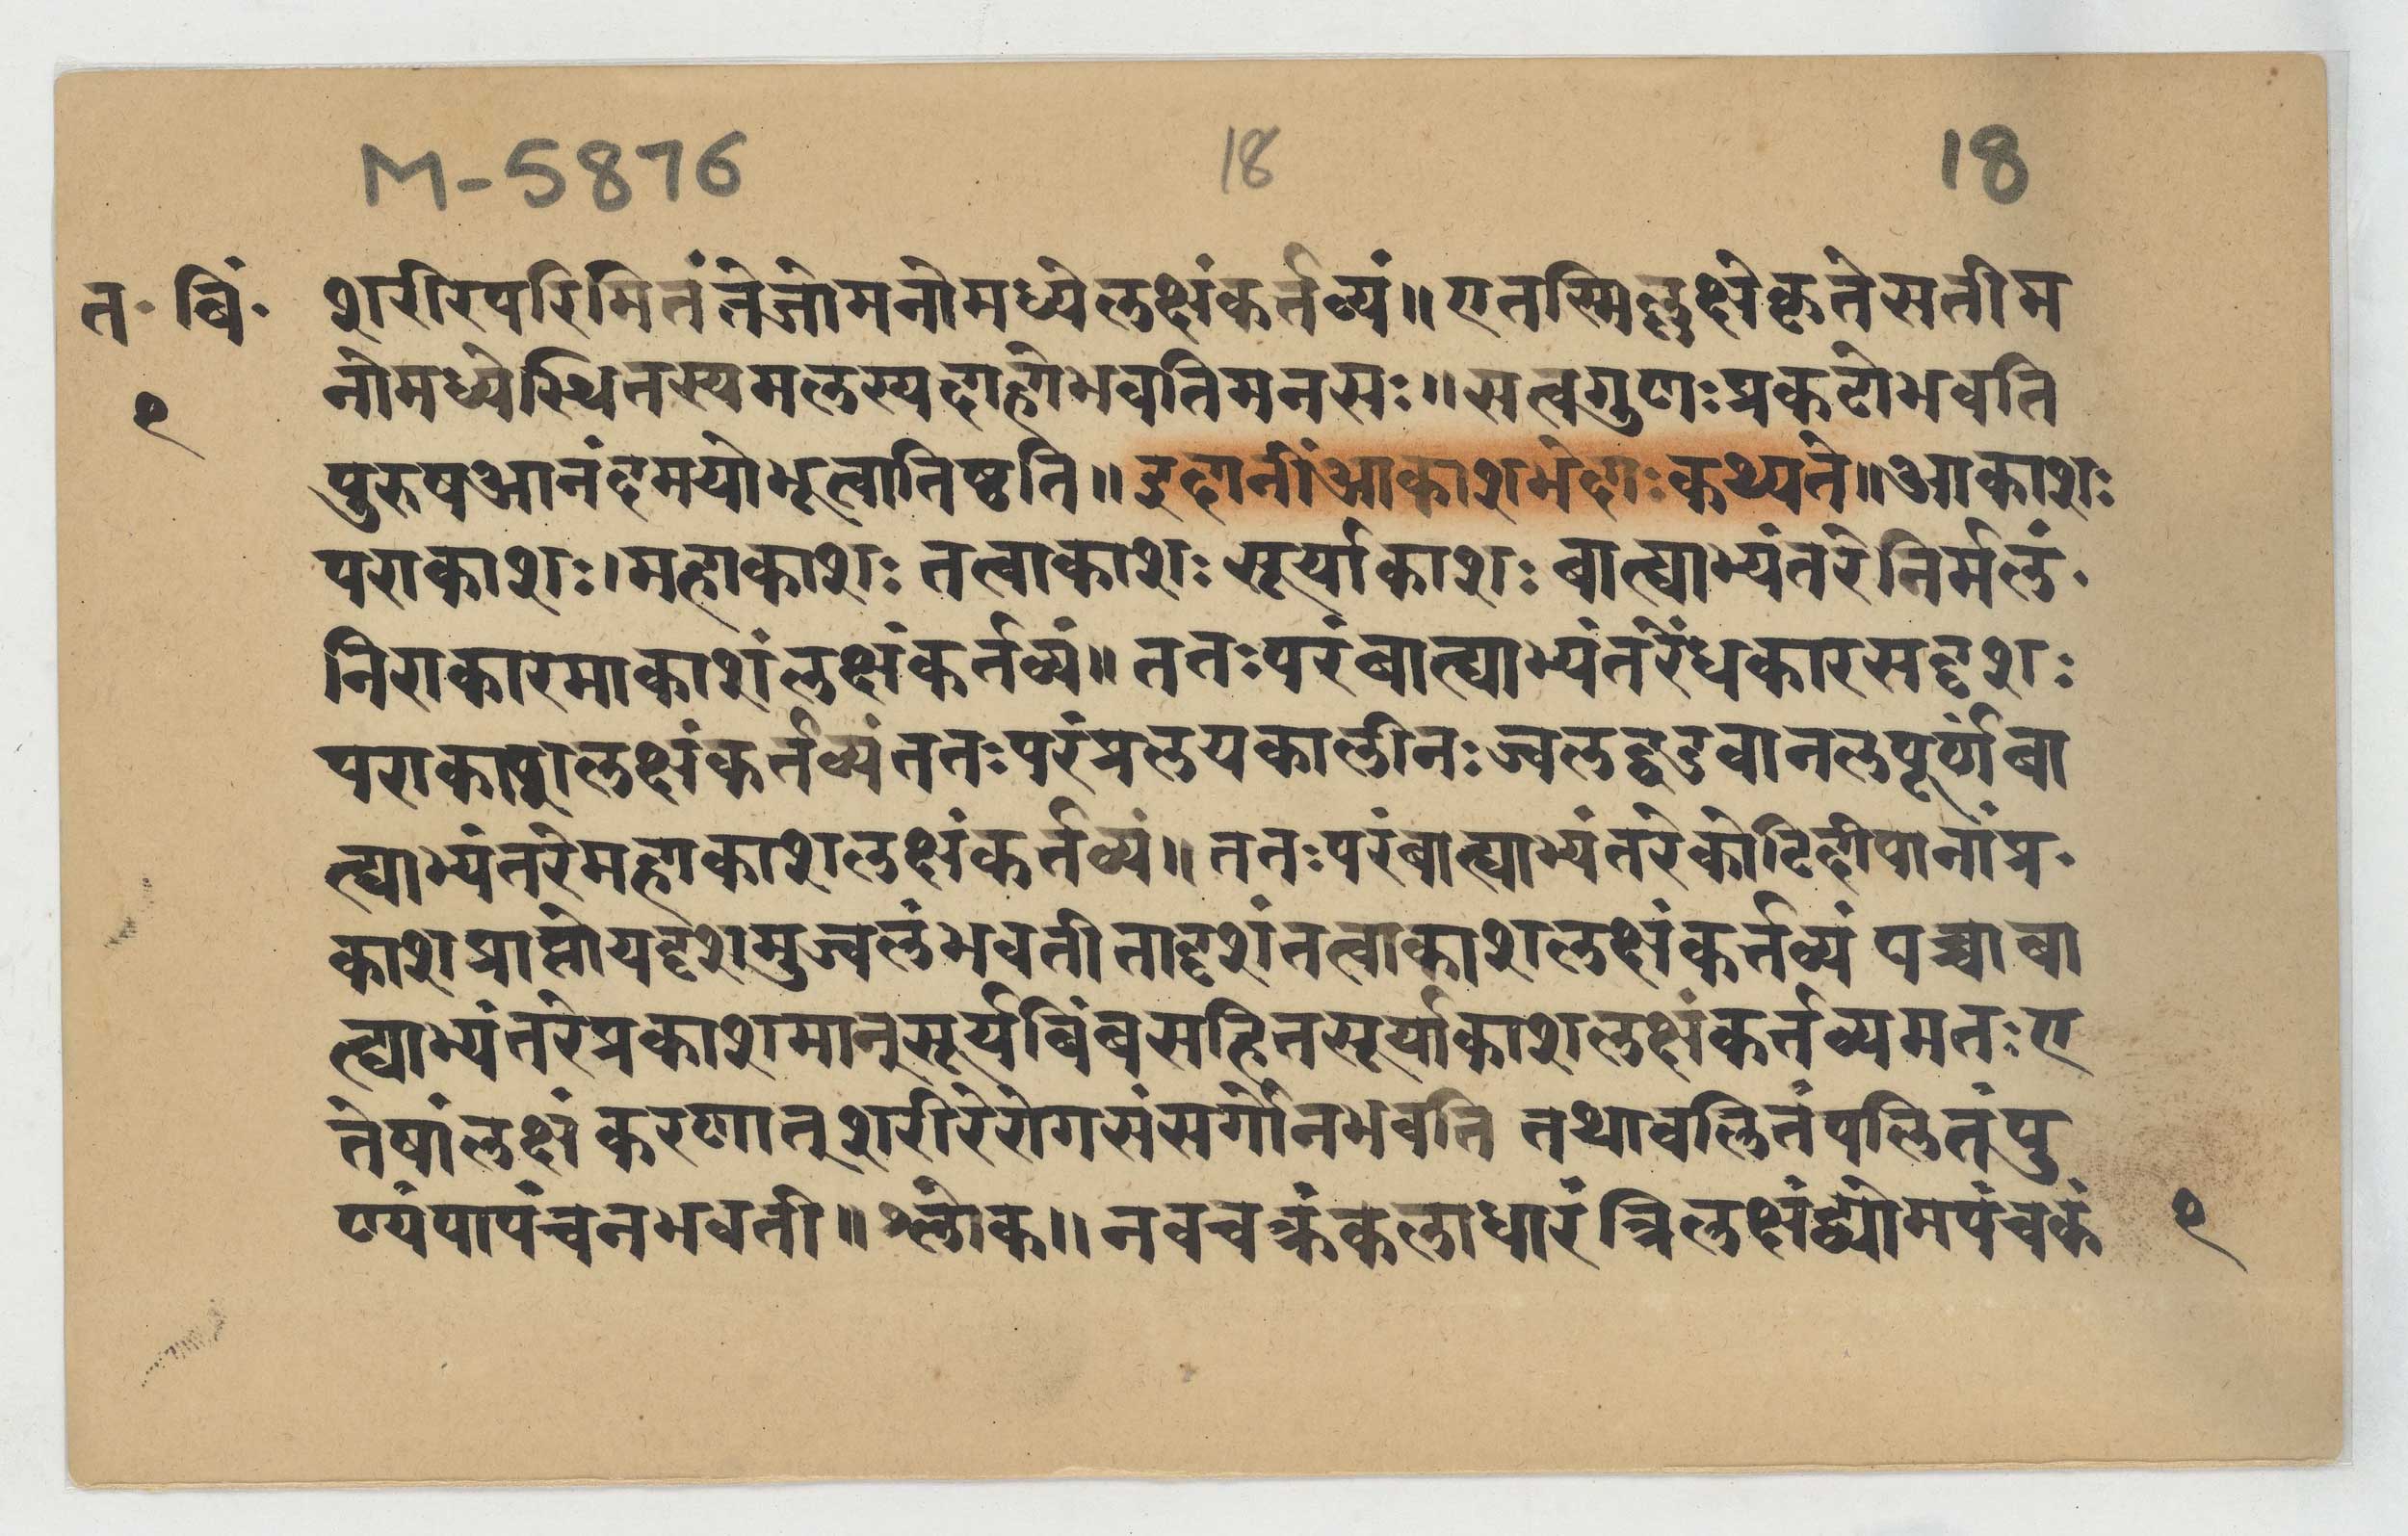 M-5876 18 18
त॰ बिं॰ शरीरपरिमितंतेजोमनोमध्येलक्षंकर्तव्यं॥ एतस्मिल्लक्षेकृतेसतीम
९ नोमध्येस्थितस्यमलस्यदाहोभवतिमनसः॥ सत्वगुणःप्रकटोभवति
पुरुषआनंदमयोभूत्वातिष्ठति॥ इदानींआकाशभेदाःकथ्यते॥ आकाशः
पराकाशः।महाकाशः तत्वाकाशः सूर्याकाशः बात्ह्याभ्यंतरेनिर्मलं॰
निराकारमाकाशंलक्षंकर्तव्यं॥ ततःपरंबात्ह्याभ्यंतरेंधकारसदृशः
लक्षंकर्तव्यं ततःपरंप्रलयकालीनः ज्वलद्वडवानलपूर्णंबा
त्ह्याभ्यंतरेमहाकाशलक्षंकर्तव्यं॥ ततःपरंबात्ह्याभ्यंतरेकोटिदीपानांप्र॰
काशप्राप्तोयदृशमुज्वलंभवती तादृशंतत्वाकाशलक्षंकर्तव्यं पश्चाबा
त्ह्याभ्यंतरेप्रकाशमानुसूर्यबिंबसहितसूर्याकाशलक्षंकर्तव्यमतःए
तेषांलक्षं करणात् शरीरेरोगसंसर्गोनभवति तथावलितंपलितंपु
ण्यंपापंचनभवती॥ श्लोक॥ नवचक्रंकलाधारं त्रिलक्षंव्योमपंचकं ९